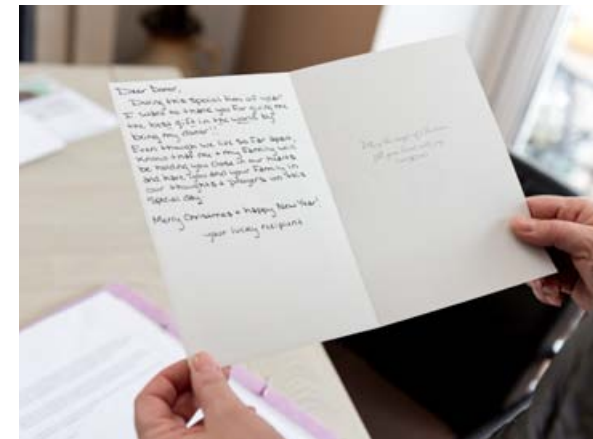 Dear Donor,
During this special time of year
I want to thank you for giving me
the best gift in the world by
being my donor!!
Even though we live so far apart,
know that me + my family will
be holding you close in our hearts
and have you and your family in
our thoughts + prayers on this
special day.
Merry Christmas + Happy New Year!
-your lucky recipient